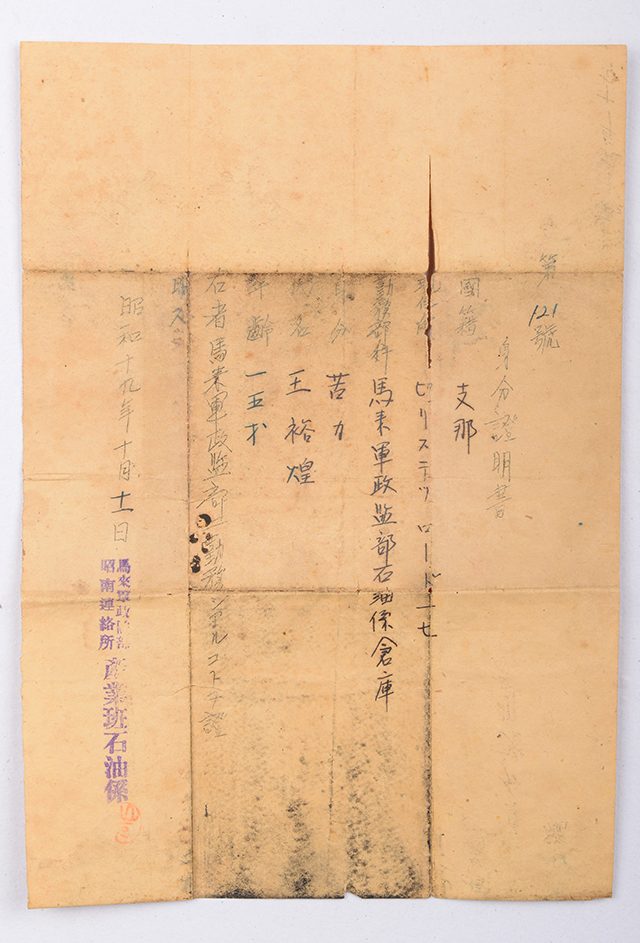 第121號
身分證明書
國籍 支那
現住所 切リステツ ロード 一七
勤務部科 馬来軍政監部石油係倉庫
身分 苦力
氏名 王裕煌
年齢 一五才
右者馬来軍政監部ニ勤務シ居ルコトヲ證
明ス
昭和十九年十月十一日
馬來軍政監部
昭南連絡所
產業班石油係